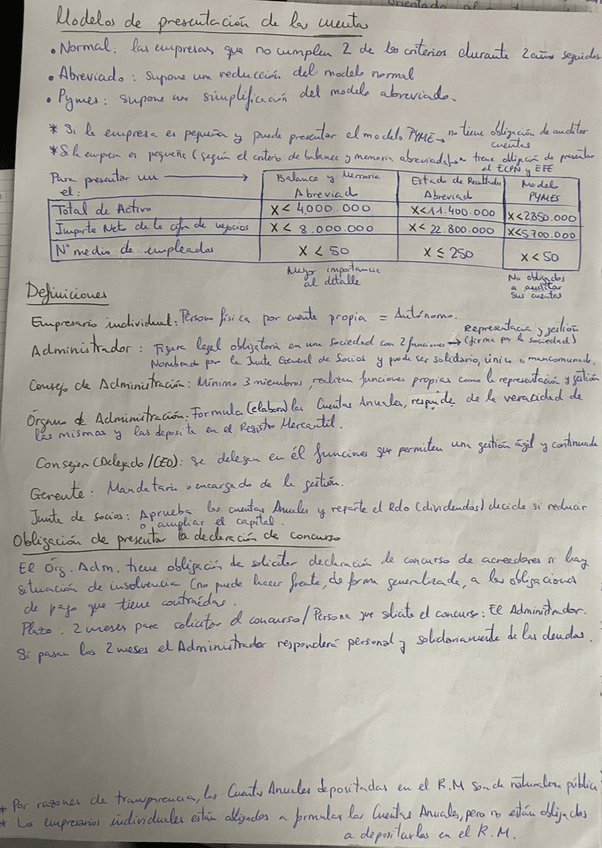 Orientado al
Modelos de presentación de la cuenta
• Normal: las empresas que no cumplen 2 de los criterios durante 2 años seguidos
• Abreviado: Supone una reducción del modelo normal
• Pymes: supone una simplificación del modelo abreviado.
* Si la empresa es pequeña y puede presentar el modelo PYME → no tiene obligación de auditar cuentas
* Si la empresa es pequeña (según el criterio de balance y memoria abreviada) → no tiene obligación de presentar el ECPN y EFE
Para presentar un el: → Balance y Memoria Abreviad Estado de Resultados Abreviad Modelo PYMES
Total de Activo X < 4.000.000 X < 11.400.000 X < 2.850.000
Importe Neto de la cifra de negocios X < 8.000.000 X < 22.800.000 X < 5.700.000
Nº medio de empleados X < 50 X ≤ 250 X < 50
Mayor importancia al detalle
No obligados a auditar sus cuentas
Definiciones
Empresario individual: Persona física por cuenta propia = Autónomo.
Administrador: Figura legal obligatoria en una Sociedad con 2 funciones → Representación y gestión (firma por la sociedad)
Nombrado por la Junta General de Socios y puede ser solidario, único o mancomunado.
Consejo de Administración: Mínimo 3 miembros, realizan funciones propias como la representación y gestión
Órgano de Administración: Formula (elabora) las Cuentas Anuales, responde de la veracidad de
las mismas y las deposita en el Registro Mercantil.
Consejero Delegado/(CEO): se delegan en él funciones que permiten una gestión ágil y continuada
Gerente: Mandatario o encargado de la gestión.
Junta de socios: Aprueba las cuentas Anuales y reparte el Rdo (dividendos) decide si reducir
o ampliar el capital.
Obligación de presentar la declaración de concurso
El Órg. Adm. tiene obligación de solicitar declaración de concurso de acreedores si hay
situación de insolvencia (no puede hacer frente, de forma generalizada, a las obligaciones
de pago que tiene contraídas.
Plazo: 2 meses para solicitar el concurso / Persona que solicite el concurso: El Administrador.
Si pasan los 2 meses el Administrador responderá personal y solidariamente de las deudas.
* Por razones de transparencia, las Cuentas Anuales depositadas en el R.M son de naturaleza pública
* Los empresarios individuales están obligados a formular las Cuentas Anuales, pero no están obligados
a depositarlas en el R.M.